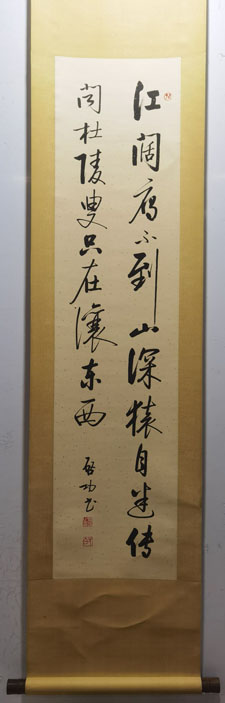 江阔雁不到山深猿自迷传
问杜陵叟只在瀼东西
启功书